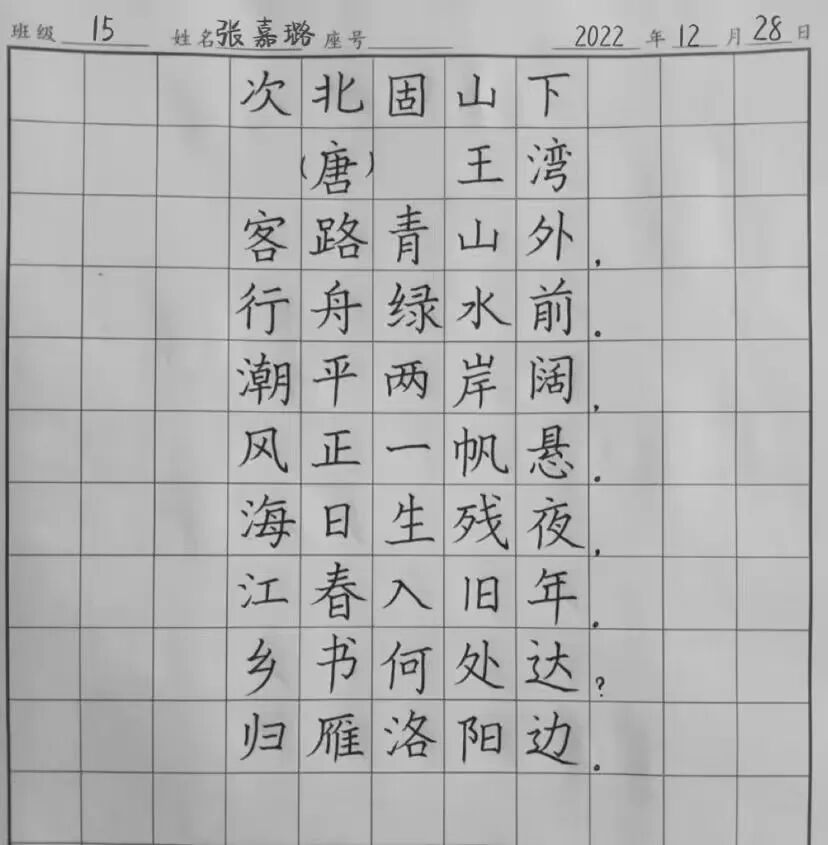 班级 15 姓名 张嘉璐 座号 2022 年 12 月 28 日
次北固山下
(唐) 王湾
客路青山外,
行舟绿水前.
潮平两岸阔,
风正一帆悬.
海日生残夜,
江春入旧年.
乡书何处达?
归雁洛阳边.